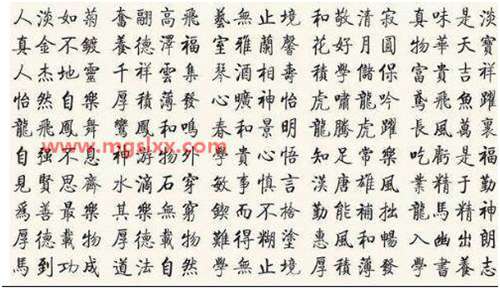 人淡如菊 奮翮高飛 藝無止境 和敬清寂 真味是淡
真金不鍍 養德澤福 室雅蘭馨 花好月圓 物華天寶
人杰地靈 千祥雲集 琴相壽 積學儲保 富貴吉祥
怡然自樂 厚積薄發 曠神怡 虎嘯龍吟 鳶飛魚躍
龍飛鳳舞 鸞鳳和鳴 春和景明 龍騰虎躍 長風萬裏
自強不息 神游物外 學貴心悟 知足常樂 吃虧是福
見賢思齊 水滴石穿 敏事慎言 漢唐雄風 業精于勤
爲善最樂 其樂無窮 鍥而不捨 勤能補拙 龍馬精神
厚德載物 厚德載物 難得糊塗 惠風和暢 入幽出朗
馬到功成 道法自然 學無止境 厚積薄發 學書養志
www.mgslxx.com